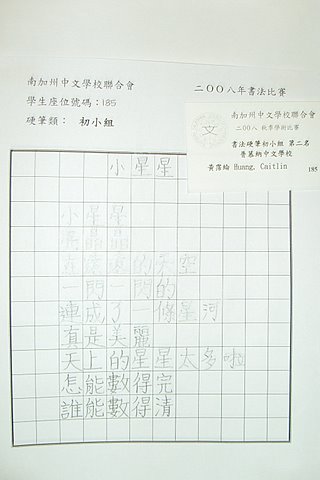 南加州中文學校聯合會
二〇〇八年書法比賽
學生座位號碼：185
硬筆類： 初小組
南加州中文學校聯合會
二〇〇八 秋季學術比賽
書法硬筆初小組 第二名
普慕納中文學校
黃 Huang, Caitlin
185
文
小星星
小星星
亮晶晶
在遙遠的天空
一閃一閃的
連成了一條星河
真是美麗
天上的星星太多啦
怎能數得完
誰能數得清